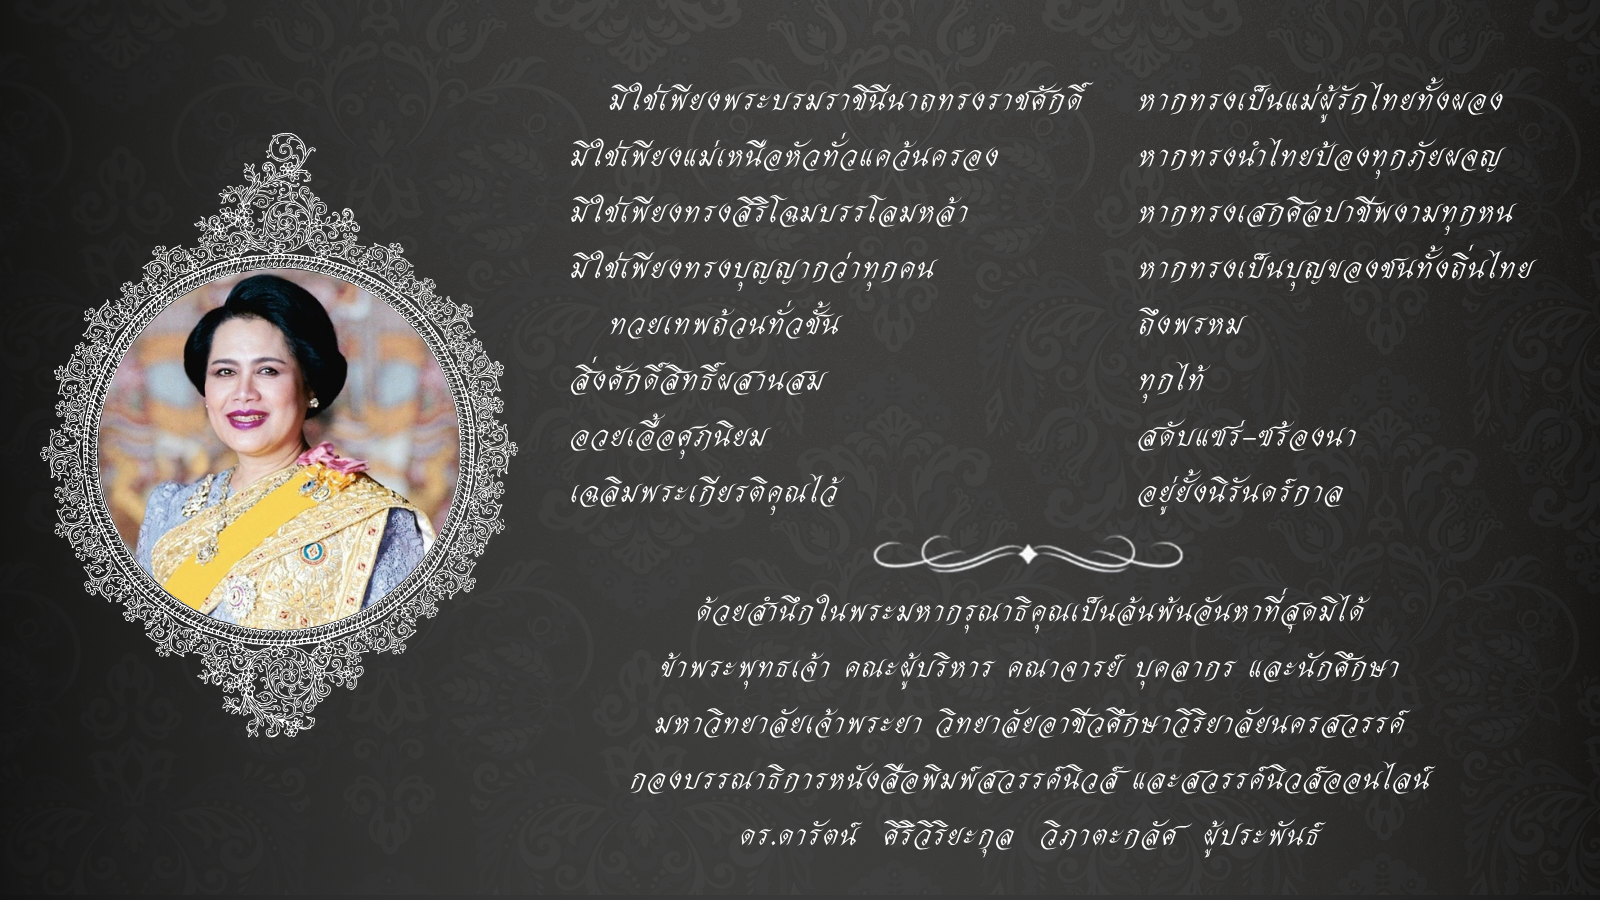 มิใช่เพียงพระบรมราชินีนาถทรงราชศักดิ์ หากทรงเป็นแม่ผู้รักไทยทั้งผอง
มิใช่เพียงแม่เหนือหัวทั่วแคว้นครอง หากทรงนำไทยป้องทุกภัยผจญ
มิใช่เพียงทรงสิริโฉมบรรโลมหล้า หากทรงเสกศิลปาชีพงามทุกหน
มิใช่เพียงทรงบุญญากว่าทุกคน หากทรงเป็นบุญของชนทั้งถิ่นไทย
ทวยเทพถ้วนทั่วชั้น ถึงพรหม
สิ่งศักดิ์สิทธิ์ผสานสม ทุกไท้
อวยเอื้อศุภนิยม สดับแซร่-ซร้องนา
เฉลิมพระเกียรติคุณไว้ อยู่ยั้งนิรันดร์กาล
ด้วยสำนึกในพระมหากรุณาธิคุณเป็นล้นพ้นอันหาที่สุดมิได้
ข้าพระพุทธเจ้า คณะผู้บริหาร คณาจารย์ บุคลากร และนักศึกษา
มหาวิทยาลัยเจ้าพระยา วิทยาลัยอาชีวศึกษาวิริยาลัยนครสวรรค์
กองบรรณาธิการหนังสือพิมพ์สวรรค์นิวส์ และสวรรค์นิวส์ออนไลน์
ดร.ดารัตน์ ศิริวิริยะกุล วิภาตะกลัศ ผู้ประพันธ์